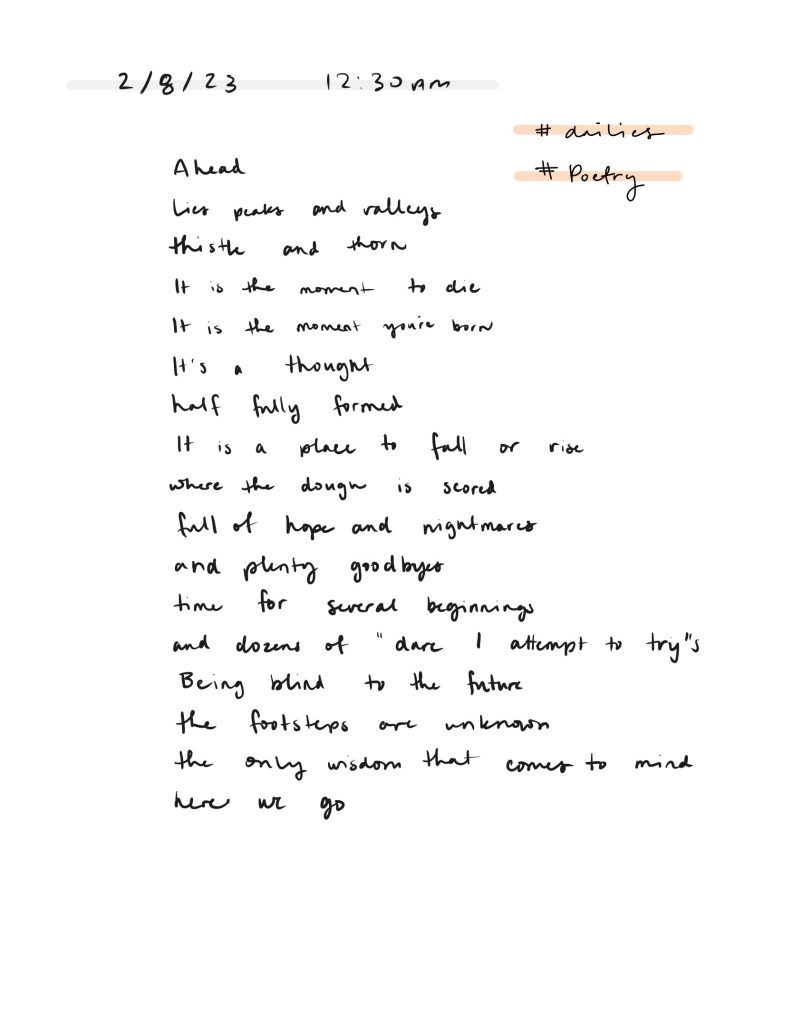 2/8/23 12:30 AM
# dailies
# Poetry
Ahead
Lies peaks and valleys
thistle and thorn
It is the moment to die
It is the moment you're born
It's a thought
half fully formed
It is a place to fall or rise
where the dough is scored
full of hope and nightmares
and plenty goodbyes
time for several beginnings
and dozens of "dare I attempt to try"s
Being blind to the future
the footsteps are unknown
the only wisdom that comes to mind
here we go